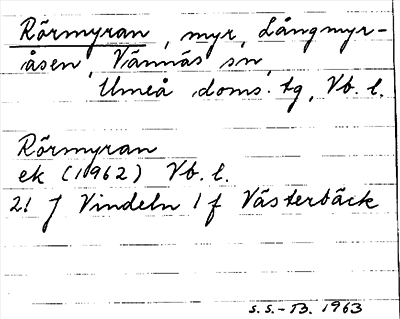 Rörmyran, myr, Långmyr-
åsen, Vännäs sn,
Umeå doms. tg, Vb. l.
Rörmyran
ek (1962) Vb. l.
21 J Vindeln 1 f Västerbäck
S.S.-B. 1963